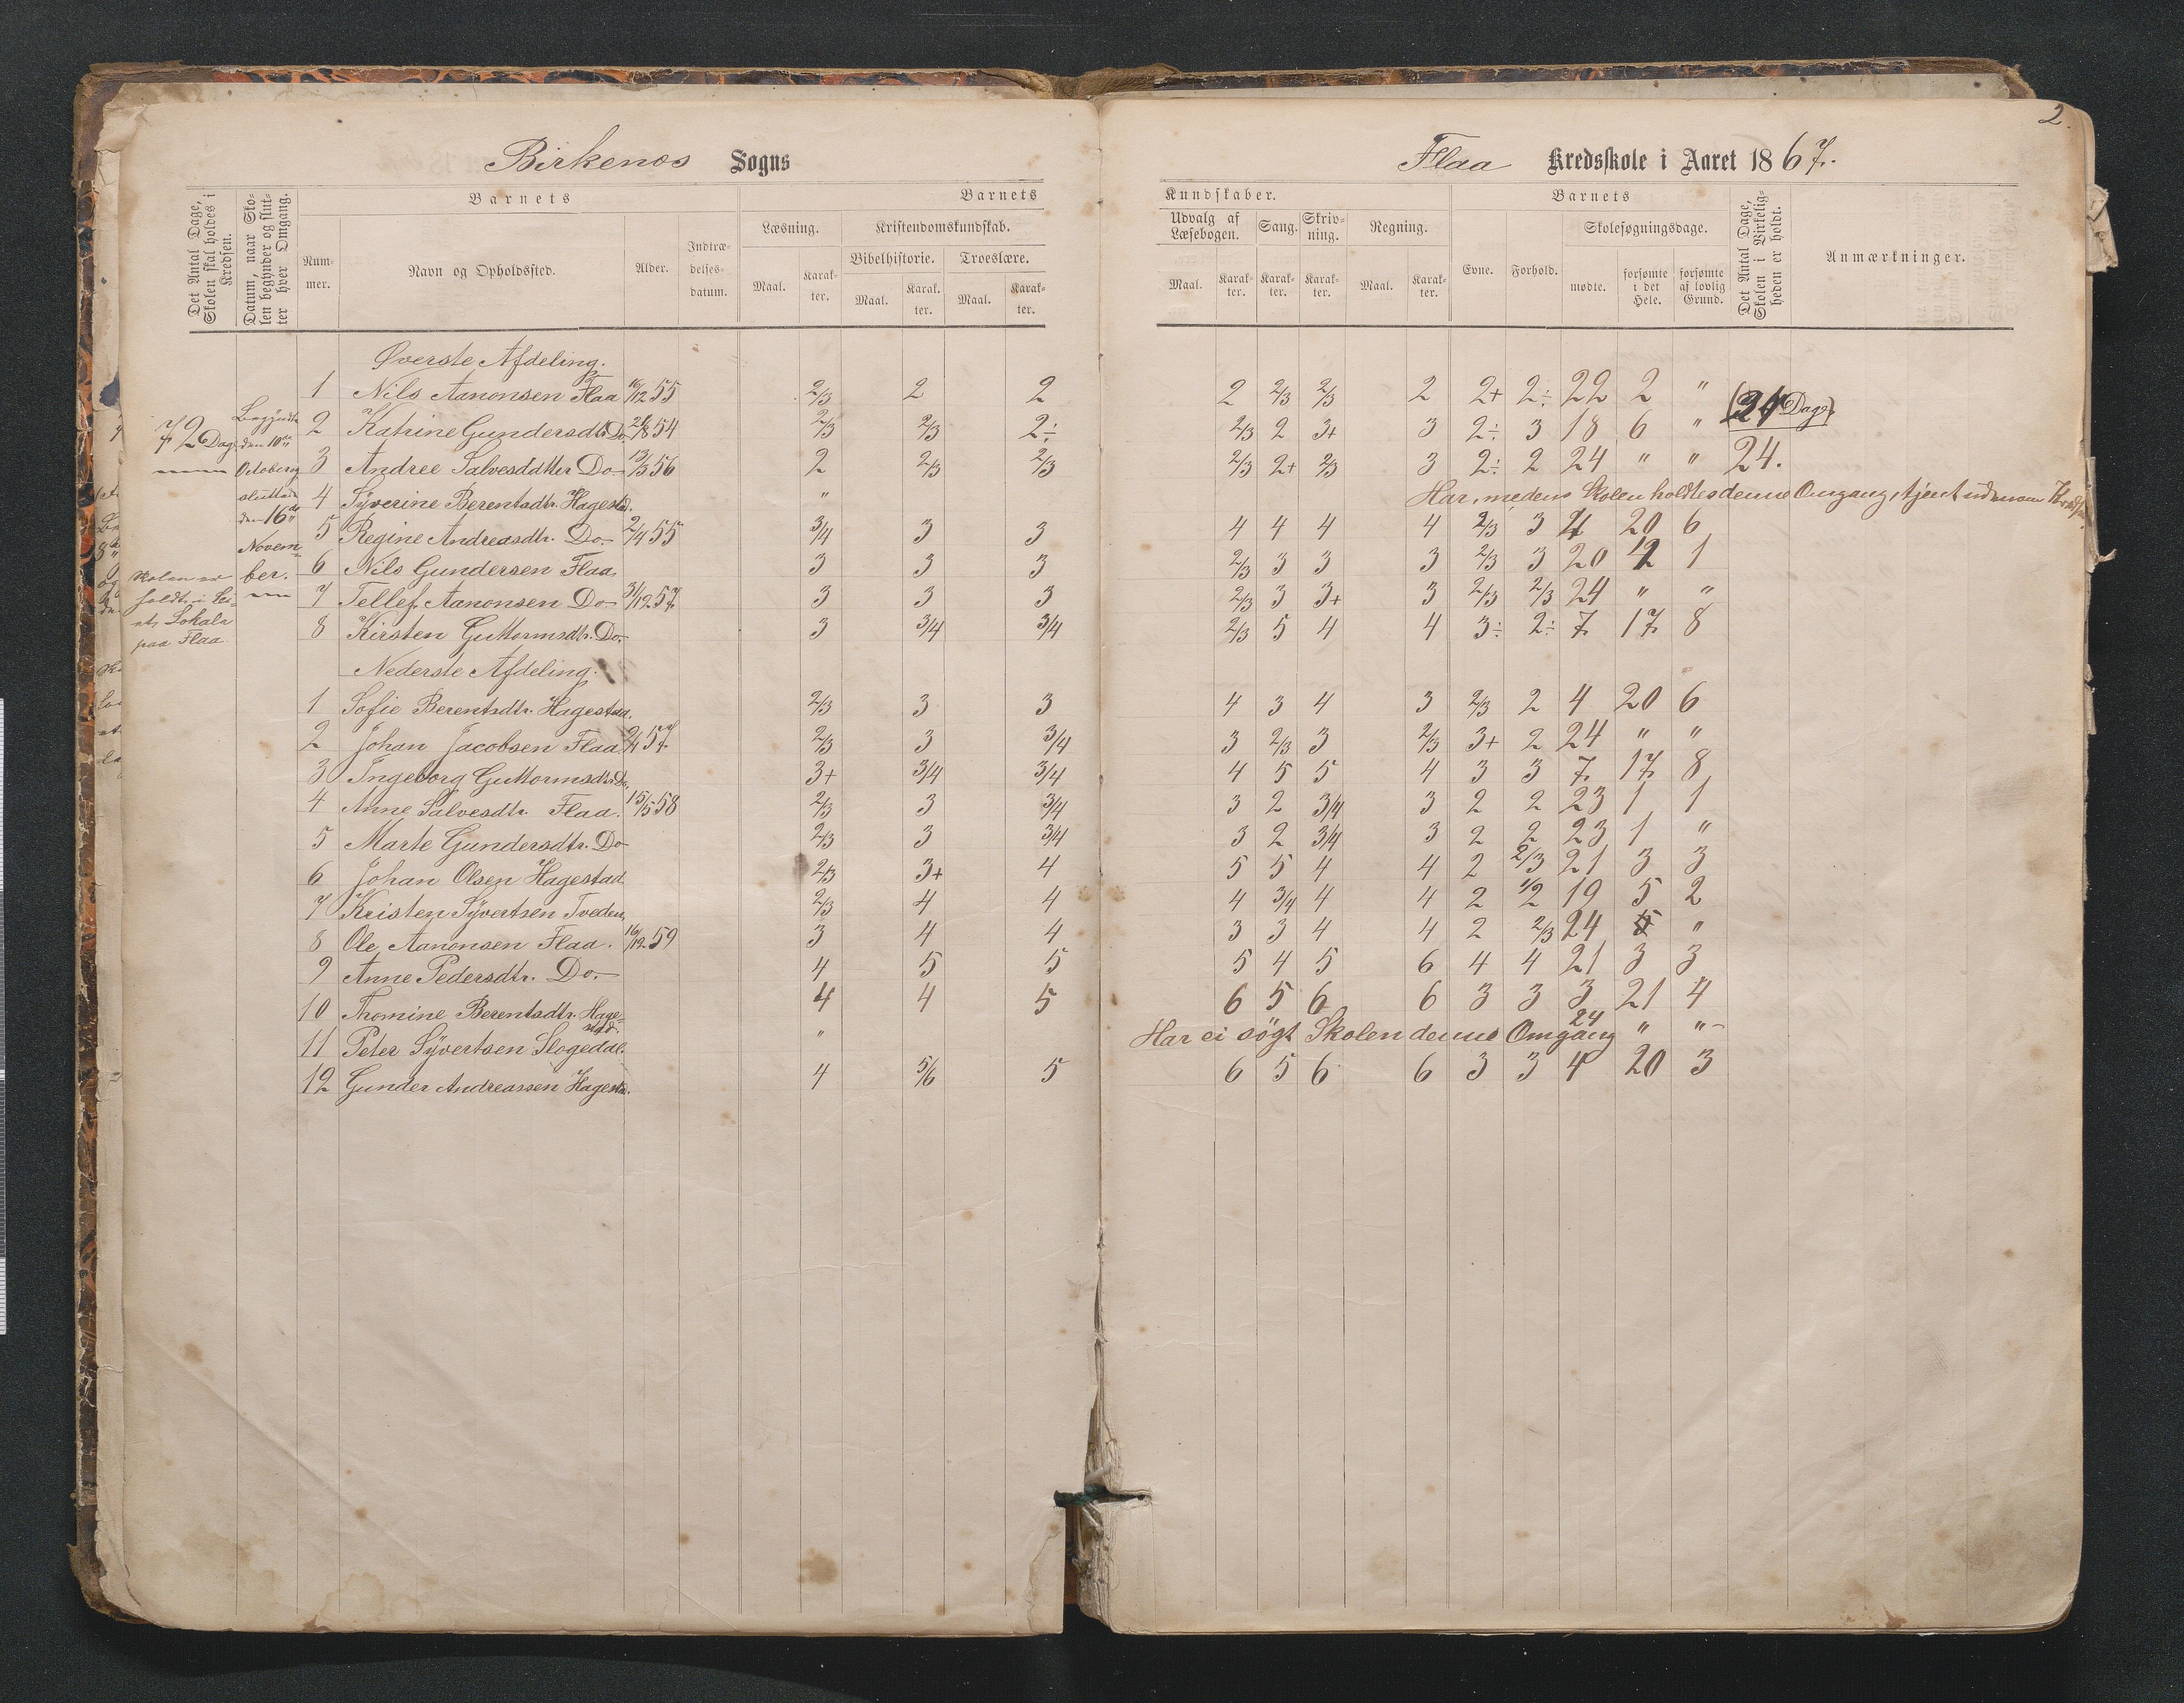 2.
Birkenes Sogns
Flaa Kredsskole i Aaret 1867.
Det Antal Dage, Skolen skal holdes i Kredsen.
Datum, naar Skolen begynder og slutter hver Omgang.
Barnets
Barnets
Kundskaber.
Barnets
Det Antal Dage, Skolen i Virkeligheden er holdt.
Anmærkninger.
Nummer.
Navn og Opholdssted.
Alder.
Indtrædelsesdatum.
Læsning.
Kristendomskundskab.
Bibelhistorie.
Troeslære.
Maal.
Karakter.
Maal.
Karakter.
Maal.
Karakter.
Udvalg af Læsebogen.
Sang.
Skrivning.
Regning.
Evne.
Forhold.
Skolesøgningsdage.
Maal.
Karakter.
Karakter.
Karakter.
Maal.
Karakter.
mødte.
forsømte i det Hele.
forsømte af lovlig Grund.
72 Dage
Begyndte
den 10de
October,
sluttede
den 16de
Novem-
ber.
Skolen er
holdt i
et Lokale
paa Flaa
Øverste Afdeling.
1 Nils Aanonsen Flaa 16/12 55 2/3 2 2 2 2/3 2/3 2 2+ 2÷ 22 2 "
(24 Dage)
2 Katrine Gundersdtr. Do. 28/8 54 2/3 2/3 2÷ 2/3 2 3+ 3 2÷ 3 18 6 "
3 Andree Salvesdatter Do 13/3 56 2 2/3 2/3 2/3 2+ 2/3 3 2÷ 2 24 " " 24.
4 Syverine Berentsdtr. Hagestad. " Har, medens Skolen holdtes denne Omgang, tjent udenom Kredsen.
5 Regine Andreasdtr. Do. 2/4 55 3/4 3 3 4 4 4 4 2/3 3 4 20 6
6 Nils Gundersen Flaa. 3 3 3 2/3 3 3 3 2/3 3 20 2 1
7 Tellef Aanonsen Do 31/12 57 3 3 3 2/3 3 3+ 3 2/3 2/3 24 " "
8 Kirsten Guttormsdtr. Do. 3 3/4 3/4 2/3 5 4 4 3÷ 2÷ 7 17 8
Nederste Afdeling.
1 Sofie Berentsdtr. Hagestad. 2/3 3 3 4 3 4 3 2/3 2 4 20 6
2 Johan Jacobsen Flaa 2/4 57 2/3 3 3/4 3 2/3 3 2/3 3+ 2 24 " "
3 Ingeborg Guttormsdtr. Do. 3+ 3/4 3/4 4 5 5 4 3 3 7 17 8
4 Anne Salvesdtr. Flaa. 15/5 58 2/3 3 3/4 3 2 3/4 3 2 2 23 1 1
5 Marte Gundersdtr. Do 2/3 3 3/4 3 2 3/4 3 2 2 23 1 "
6 Johan Olsen Hagestad 2/3 3+ 4 5 5 4 4 2 2/3 21 3 3
7 Kristen Syvertsen Tveden, 2/3 4 4 4 3/4 4 4 2 1/2 19 5 2
8 Ole Aanonsen Flaa. 16/12 59 3 4 4 3 3 4 4 2 2/3 24 "
9 Anne Pedersdtr. Do. 4 5 5 5 4 5 6 4 4 21 3 3
10 Thomine Berentsdtr. Hage-
stad. 4 4 5 6 5 6 6 3 3 3 21 4
11 Peter Syvertsen Slogedal. " Har ei søgt Skolen denne Omgang 24 " "
12 Gunder Andreassen Hagesta. 4 5/6 5 6 5 6 6 3 3 4 20 3